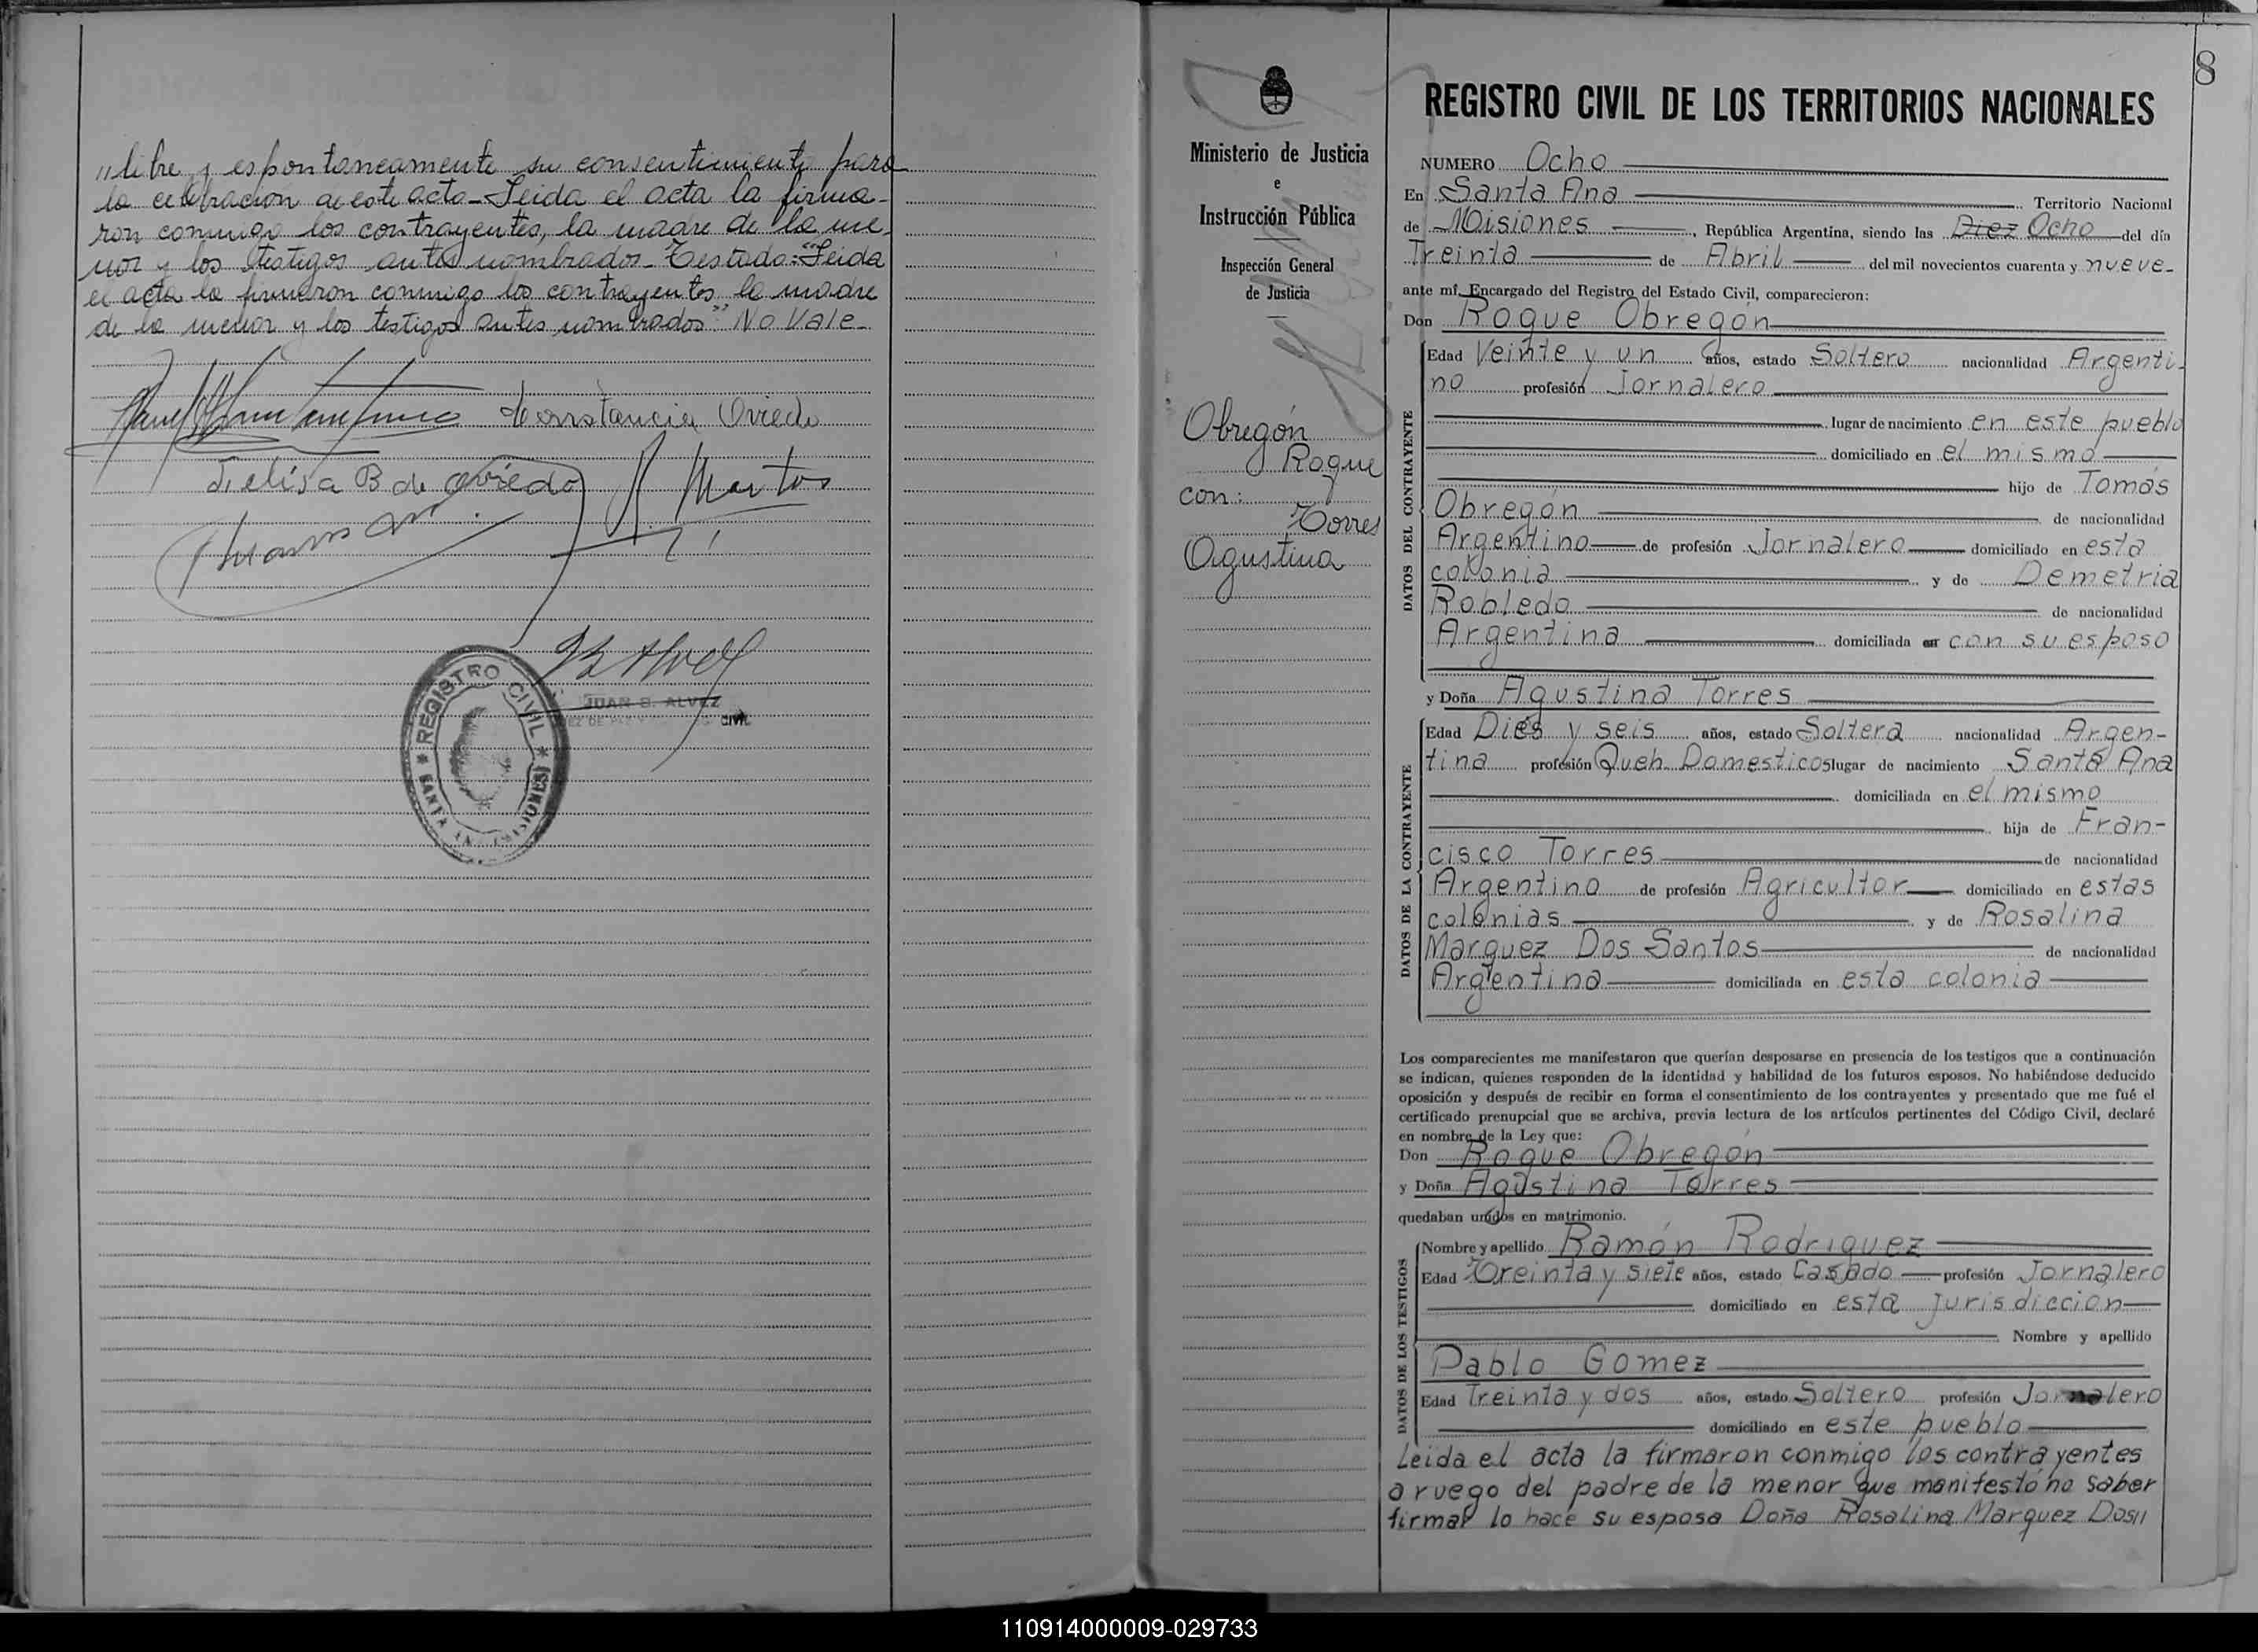 "libre y espontaneamente su consentimiento para
la celebración de este acto_Leida el acta la firma-
ron conmigo los contrayentes, la madre de la me-
nor y los testigos antes nombrados_Testado: "Leida
el acta la firmaron conmigo los contrayentes la madre
de la menor y los testigos antes nombrados" No Vale_
Constancia Oviedo
Felisa B de Oviedo
JUAN B. ALVEZ
CIVIL
REGISTRO CIVIL
SANTA ANA (MISIONES)
8
Ministerio de Justicia
e
Instrucción Pública
Inspección General
de Justicia
Obregón
Roque
con:
Torres
Agustina
REGISTRO CIVIL DE LOS TERRITORIOS NACIONALES
NUMERO Ocho
En Santa Ana Territorio Nacional
de Misiones, República Argentina, siendo las Diez Ocho del día
Treinta de Abril del mil novecientos cuarenta y nueve_
ante mí, Encargado del Registro del Estado Civil, comparecieron:
Don Roque Obregón
DATOS DEL CONTRAYENTE
Edad Veinte y un años, estado Soltero nacionalidad Argenti-
no profesión Jornalero
lugar de nacimiento en este pueblo
domiciliado en el mismo
hijo de Tomás
Obregón de nacionalidad
Argentino de profesión Jornalero domiciliado en esta
colonia y de Demetria
Robledo de nacionalidad
Argentina domiciliada en con su esposo
y Doña Agustina Torres
DATOS DE LA CONTRAYENTE
Edad Diés y seis años, estado Soltera nacionalidad Argen-
tina profesión Queh. Domesticos lugar de nacimiento Santa Ana
domiciliada en el mismo
hija de Fran-
cisco Torres de nacionalidad
Argentino de profesión Agricultor domiciliado en estas
colonias y de Rosalina
Marquez Dos Santos de nacionalidad
Argentina domiciliada en esta colonia
Los comparecientes me manifestaron que querían desposarse en presencia de los testigos que a continuación
se indican, quienes responden de la identidad y habilidad de los futuros esposos. No habiéndose deducido
oposición y después de recibir en forma el consentimiento de los contrayentes y presentado que me fué el
certificado prenupcial que se archiva, previa lectura de los artículos pertinentes del Código Civil, declaré
en nombre de la Ley que:
Don Roque Obregón
y Doña Agustina Torres
quedaban unidos en matrimonio.
DATOS DE LOS TESTIGOS
Nombre y apellido Ramón Rodriguez
Edad Treinta y siete años, estado Casado profesión Jornalero
domiciliado en esta jurisdicción
Nombre y apellido
Pablo Gomez
Edad Treinta y dos años, estado Soltero profesión Jornalero
domiciliado en este pueblo
Leida el acta la firmaron conmigo los contrayentes
a ruego del padre de la menor que manifestó no saber
firmar lo hace su esposa Doña Rosalina Marquez Dos"
110914000009-029733